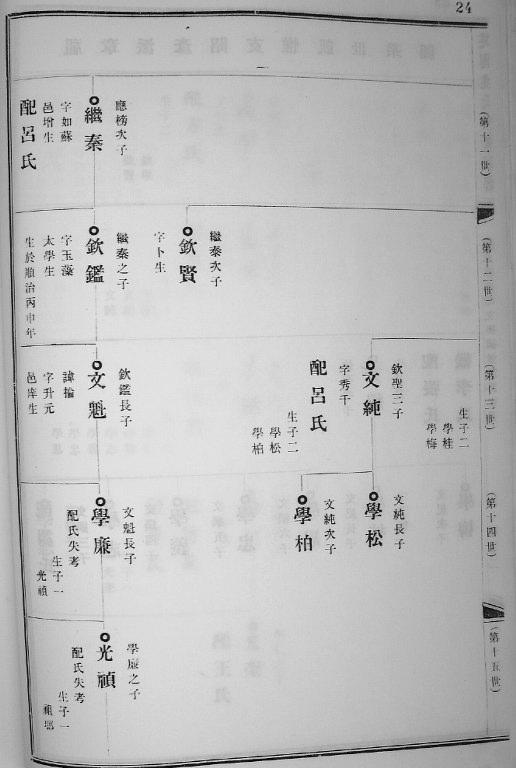 24
(第十一世)
應榜次子
繼秦
字如蘇
邑增生
配呂氏
(第十二世)
繼秦次子
欽賢
字卜生
繼秦之子
欽鑑
字玉藻
太學生
生於順治丙申年
(第十三世)
生子二
學桂
學梅
欽聖三子
文純
字秀千
配呂氏
生子二
學松
學柏
欽鑑長子
文魁
諱掄
字升元
邑庠生
(第十四世)
文純長子
學松
文純次子
學柏
文魁長子
學廉
配氏失考
生子一
光禎
(第十五世)
學廉之子
光禎
配氏失考
生子一